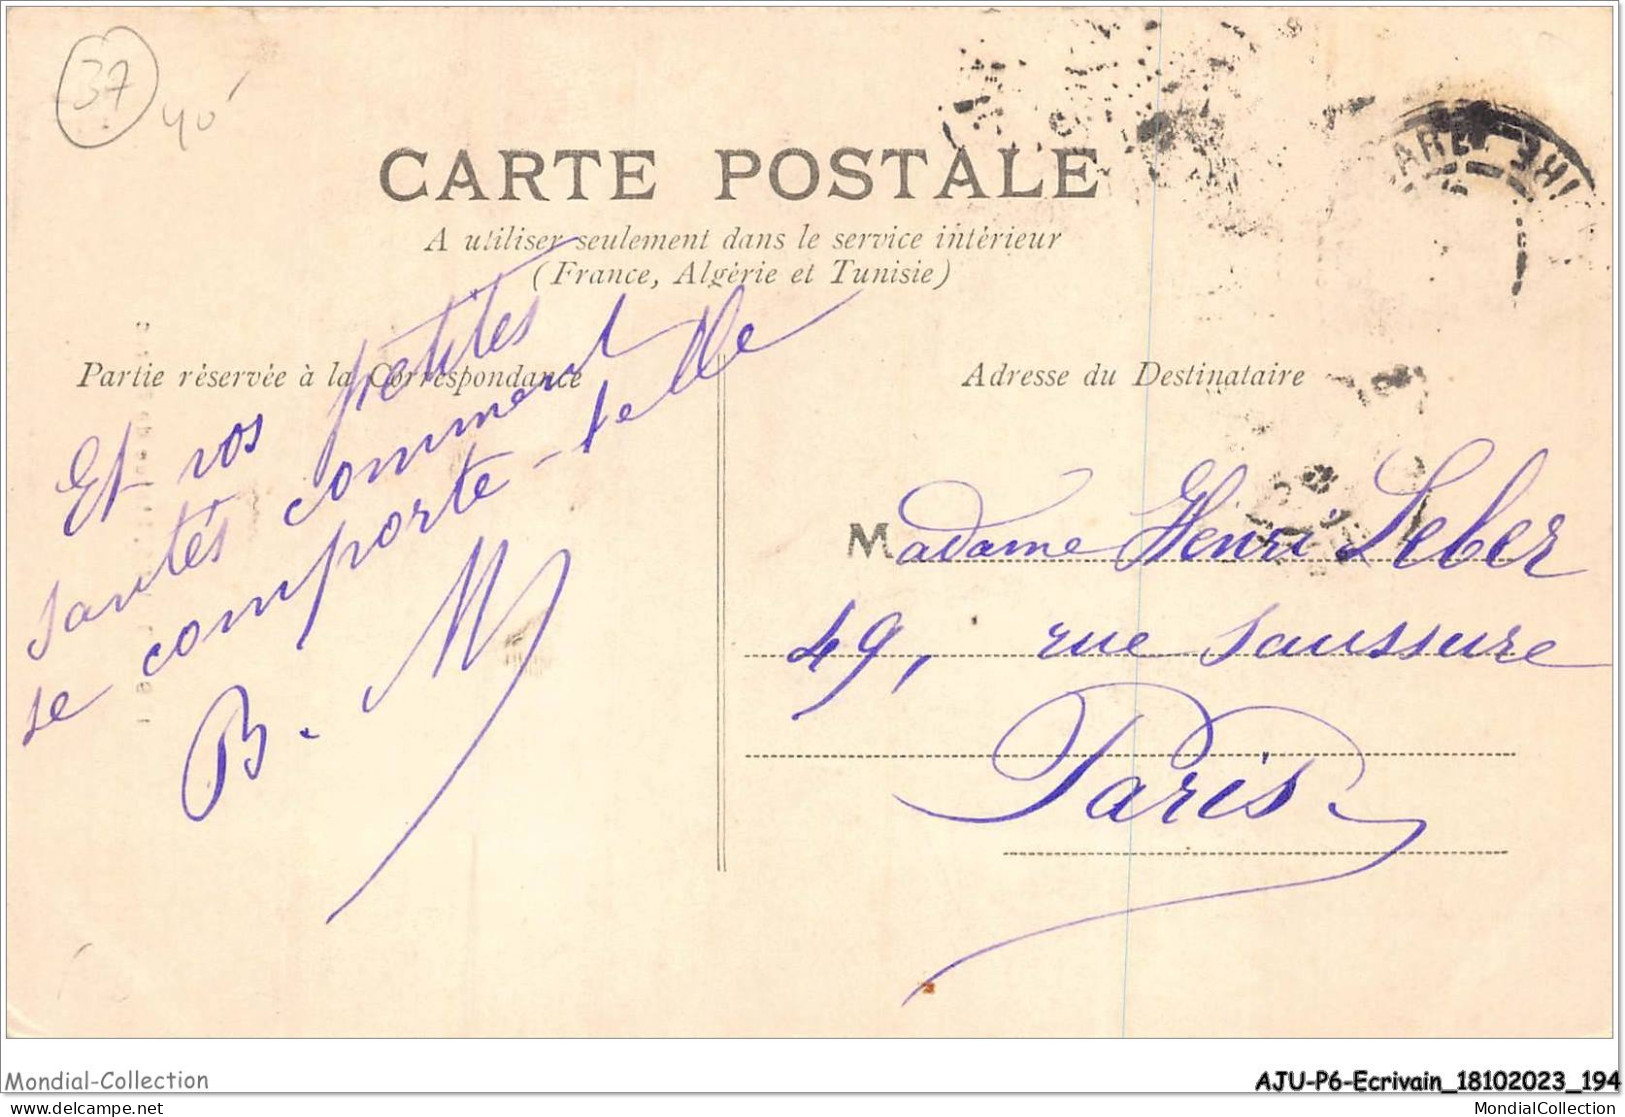 37
40
CARTE POSTALE
A utiliser seulement dans le service intérieur
(France, Algérie et Tunisie)
Partie réservée à la Correspondance
Et vos petites
santés comment
se comporte-telle
B. M
Adresse du Destinataire
Madame Henri Leber
49, rue Saussure
Paris.
Mondial-Collection
AJU-P6-Ecrivain_18102023_194
www.delcampe.net
MondialCollection